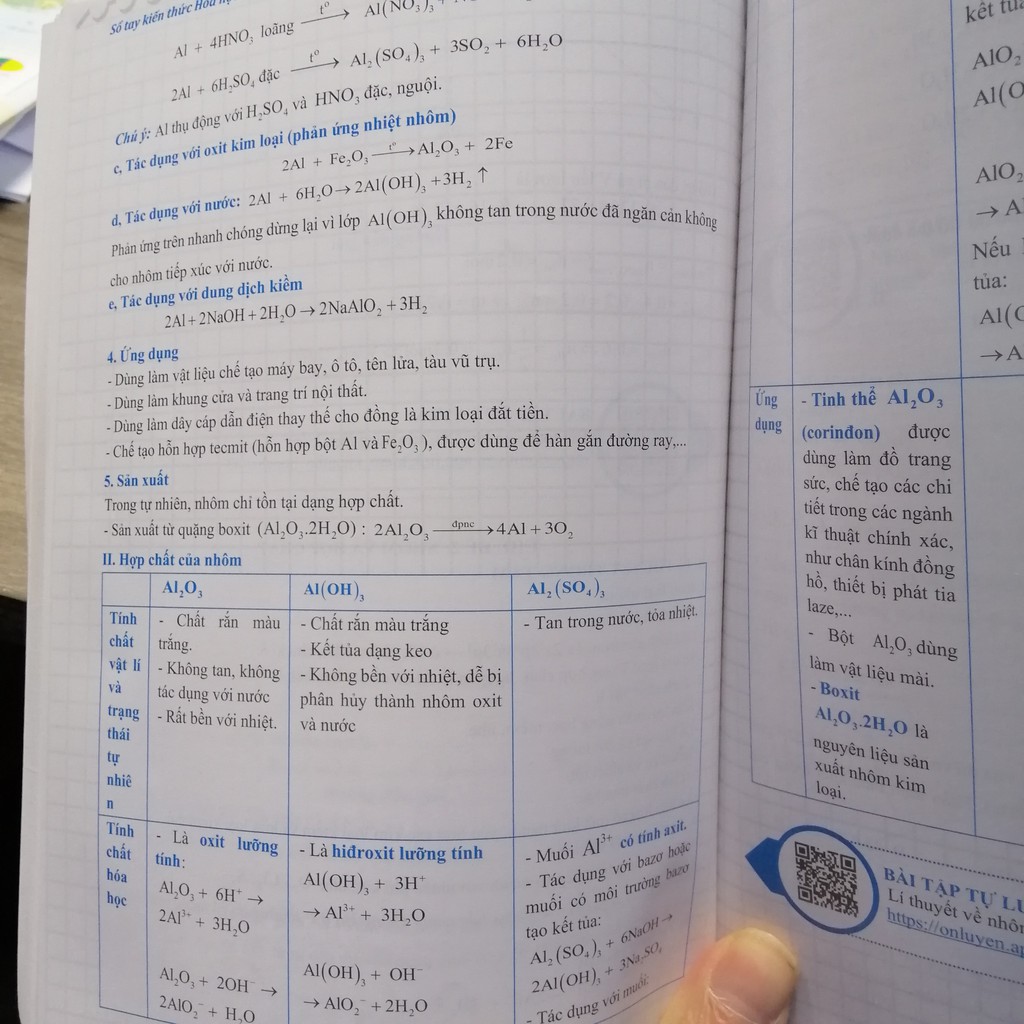 Sổ tay kiến thức Hóa
Al + 4HNO₃ loãng —t°→ Al(NO₃)₃ +
2Al + 6H₂SO₄ đặc —t°→ Al₂(SO₄)₃ + 3SO₂ + 6H₂O
Chú ý: Al thụ động với H₂SO₄ và HNO₃ đặc, nguội.
c, Tác dụng với oxit kim loại (phản ứng nhiệt nhôm)
2Al + Fe₂O₃ —t°→ Al₂O₃ + 2Fe
d, Tác dụng với nước: 2Al + 6H₂O → 2Al(OH)₃ + 3H₂ ↑
Phản ứng trên nhanh chóng dừng lại vì lớp Al(OH)₃ không tan trong nước đã ngăn cản không
cho nhôm tiếp xúc với nước.
e, Tác dụng với dung dịch kiềm
2Al + 2NaOH + 2H₂O → 2NaAlO₂ + 3H₂
4. Ứng dụng
- Dùng làm vật liệu chế tạo máy bay, ô tô, tên lửa, tàu vũ trụ.
- Dùng làm khung cửa và trang trí nội thất.
- Dùng làm dây cáp dẫn điện thay thế cho đồng là kim loại đắt tiền.
- Chế tạo hỗn hợp tecmit (hỗn hợp bột Al và Fe₂O₃), được dùng để hàn gắn đường ray,...
5. Sản xuất
Trong tự nhiên, nhôm chỉ tồn tại dạng hợp chất.
- Sản xuất từ quặng boxit (Al₂O₃.2H₂O) : 2Al₂O₃ —dpnc→ 4Al + 3O₂
II. Hợp chất của nhôm
Al₂O₃
Al(OH)₃
Al₂(SO₄)₃
Tính
chất
vật lí
và
trạng
thái
tự
nhiê
n
- Chất rắn màu
trắng.
- Không tan, không
tác dụng với nước
- Rất bền với nhiệt.
- Chất rắn màu trắng
- Kết tủa dạng keo
- Không bền với nhiệt, dễ bị
phân hủy thành nhôm oxit
và nước
- Tan trong nước, tỏa nhiệt.
Tính
chất
hóa
học
- Là oxit lưỡng
tính:
Al₂O₃ + 6H⁺ →
2Al³⁺ + 3H₂O
Al₂O₃ + 2OH⁻ →
2AlO₂⁻ + H₂O
- Là hiđroxit lưỡng tính
Al(OH)₃ + 3H⁺
→ Al³⁺ + 3H₂O
Al(OH)₃ + OH⁻
→ AlO₂⁻ + 2H₂O
- Muối Al³⁺ có tính axit.
- Tác dụng với bazơ hoặc
muối có môi trường bazơ
tạo kết tủa:
Al₂(SO₄)₃ + 6NaOH →
2Al(OH)₃ + 3Na₂SO₄
- Tác dụng với muối:
kết tủa
AlO₂
Al(O
AlO₂
→ A
Nếu
tủa:
Al(
→ A
Ứng
dụng
- Tinh thể Al₂O₃
(corinđon) được
dùng làm đồ trang
sức, chế tạo các chi
tiết trong các ngành
kĩ thuật chính xác,
như chân kính đồng
hồ, thiết bị phát tia
laze,...
- Bột Al₂O₃ dùng
làm vật liệu mài.
- Boxit
Al₂O₃.2H₂O là
nguyên liệu sản
xuất nhôm kim
loại.
BÀI TẬP TỰ LU
Lí thuyết về nhôm
https://onluyen.ap